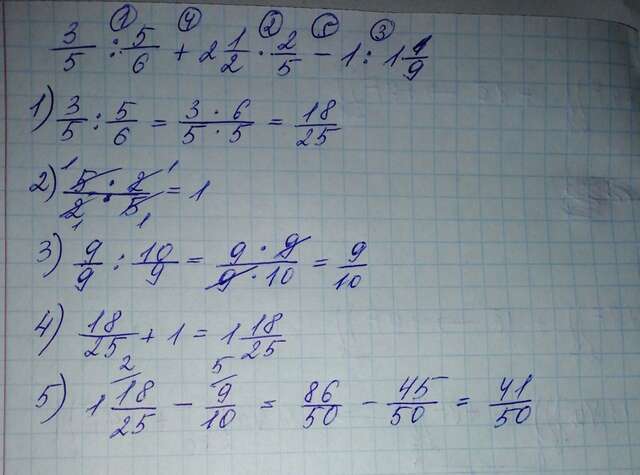 ① ④ ② ⑤ ③
3/5 : 5/6 + 2 1/2 · 2/5 - 1 : 1 1/9
1) 3/5 : 5/6 = 3 · 6 / 5 · 5 = 18/25
2) 5 · 2 / 2 · 5 = 1
3) 9/9 : 10/9 = 9 · 9 / 9 · 10 = 9/10
4) 18/25 + 1 = 1 18/25
5) 1 18/25 - 9/10 = 86/50 - 45/50 = 41/50